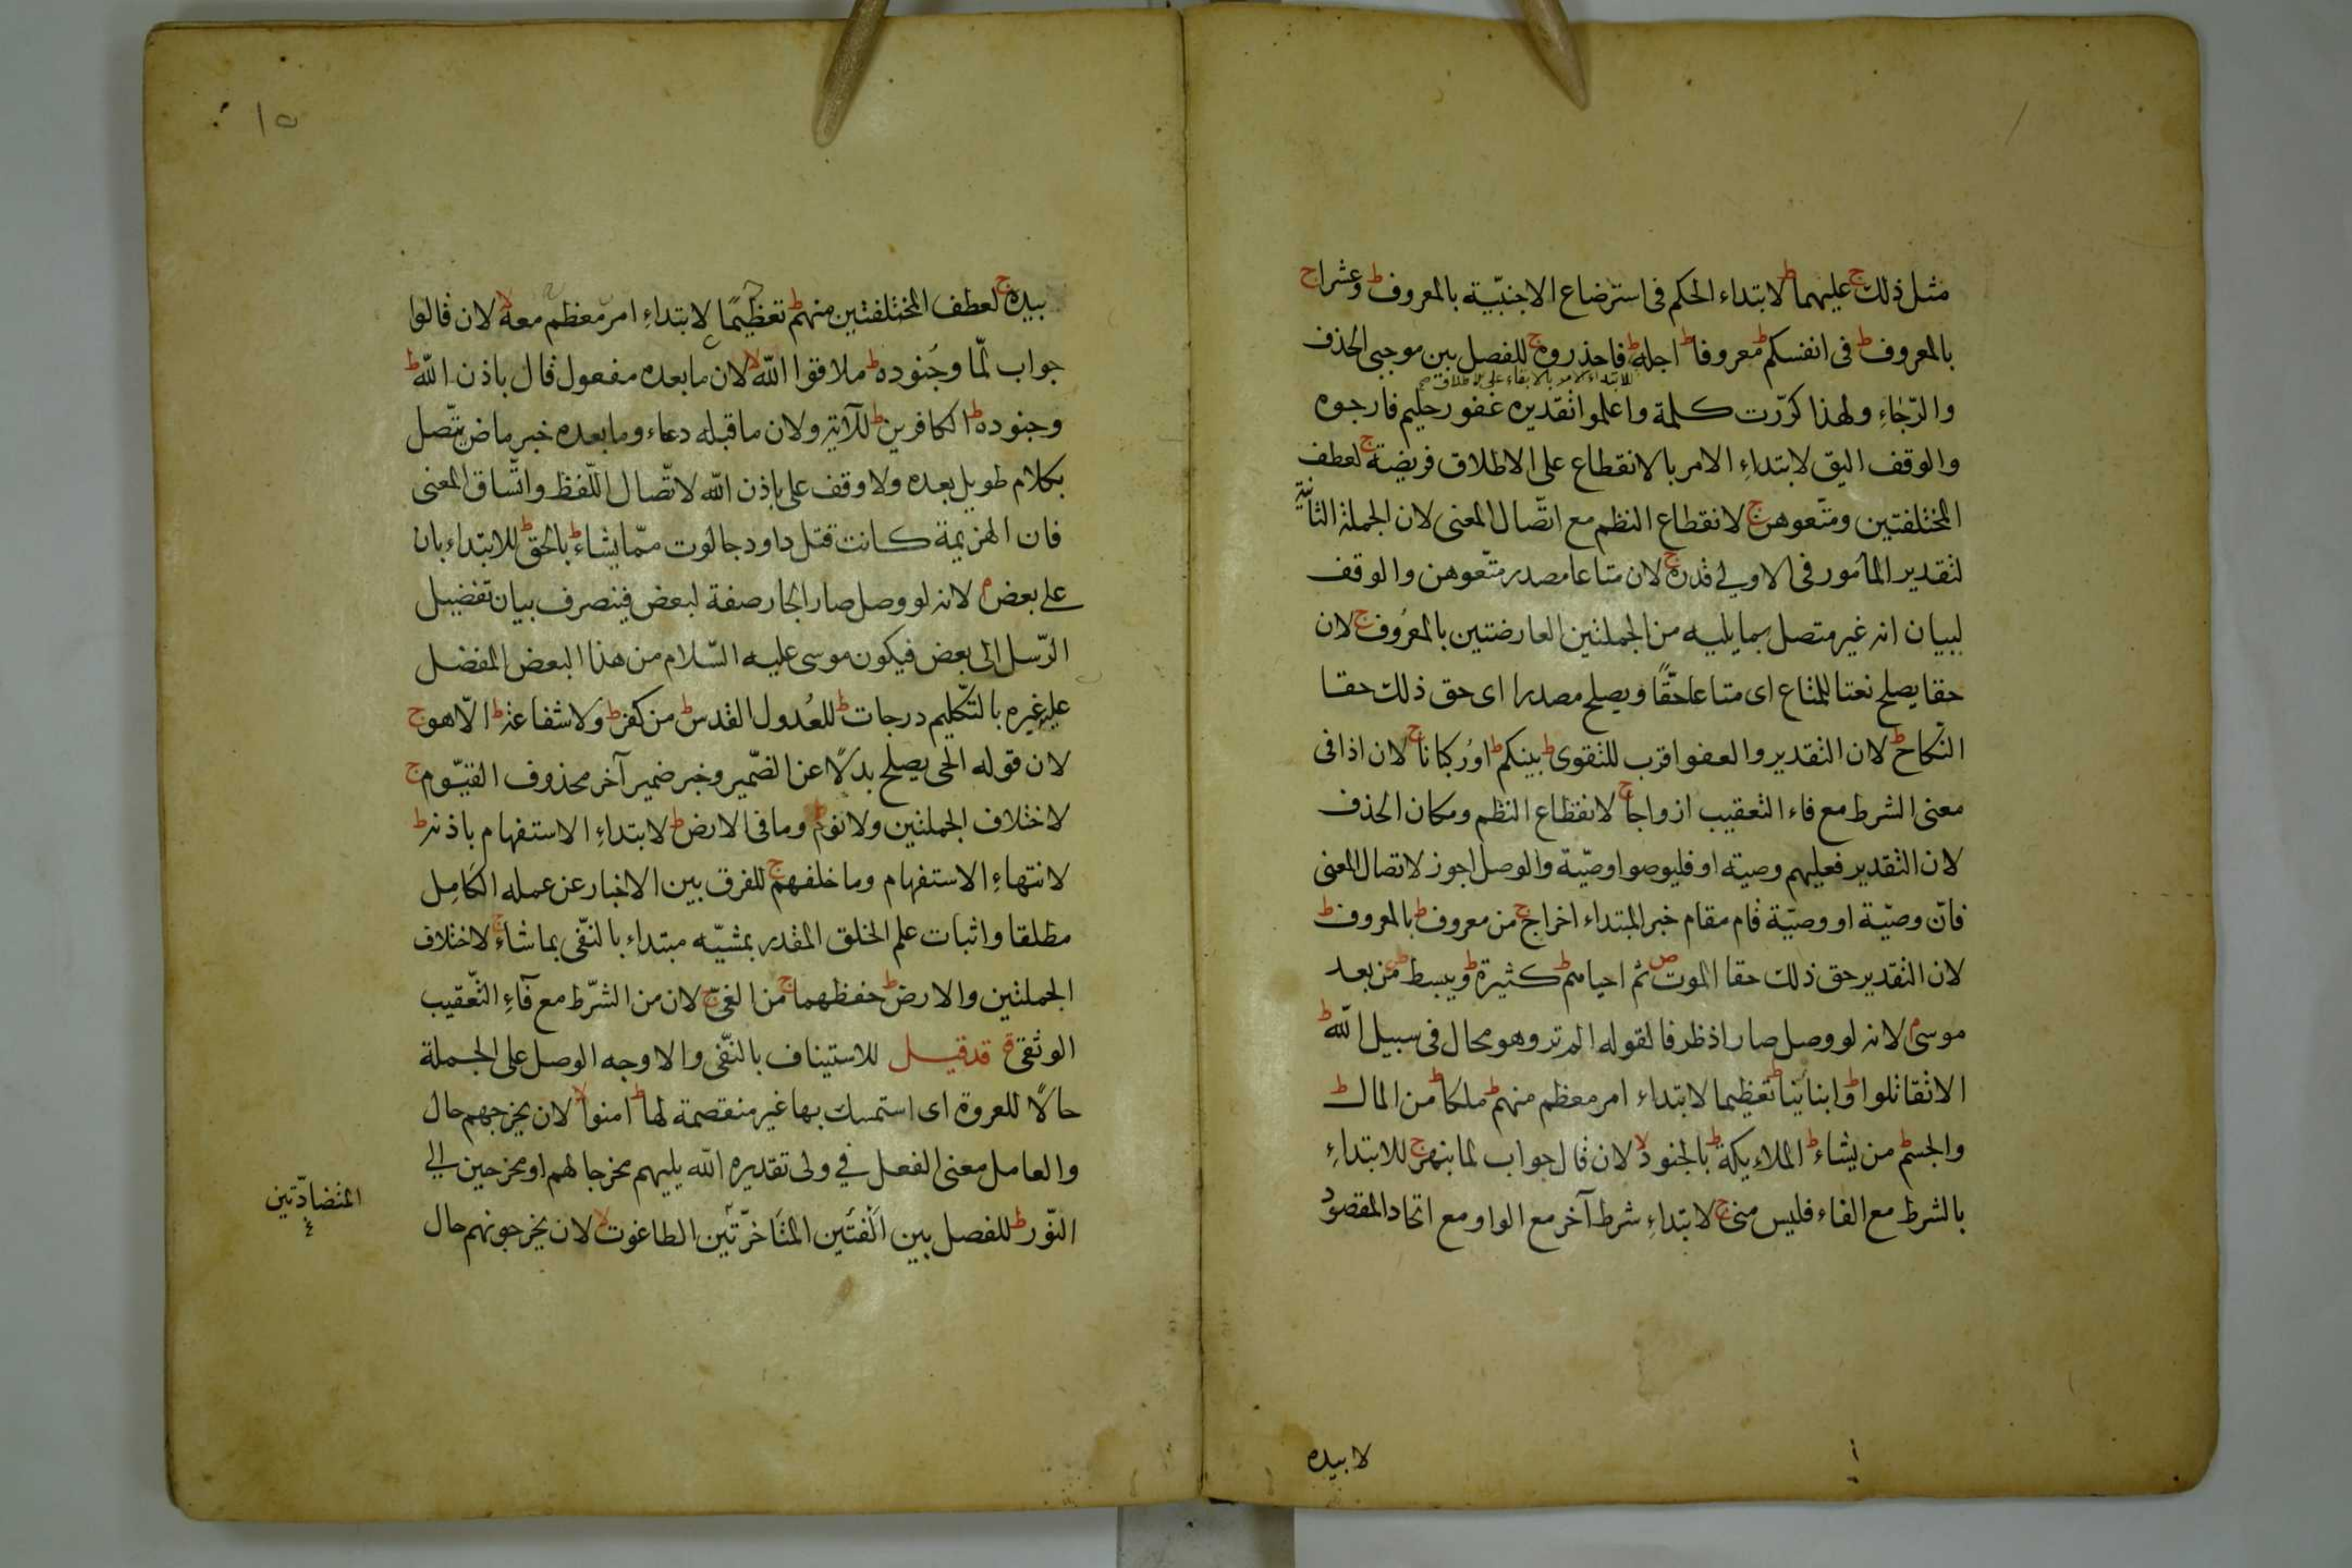 مثل ذلك ج عليهما ط لابتداء الحكم فى استرضاع الاجنبيّة بالمعروف ط وعشرا ج
بالمعروف ط فى انفسكم ط معروفا ط اجله ط فاحذروه ج للفصل بين موجبى الحذف
للابتداء الامر بالابقاء على الاطلاق صح
والرّجاءِ ولهذا كرّرت كلمة واعلموا تقديره غفور حليم فارجوه
والوقف اليق لابتداءِ الامر بالانقطاع على الاطلاق فريضة ج لعطف
المختلفتين ومتّعوهن ج لانقطاع النظم مع اتّصال المعنى لان الجملة الثانية
لتقدير المأمور فى الاولى قدره ج لان متاعا مصدر متّعوهن والوقف
لبيان انه غير متصل بما يليه من الجملتين العارضتين بالمعرُوف ج لان
حقا يصلح نعتا للمتاع اى متاعا حقًّا ويصلح مصدرا اى حق ذلك حقا
النّكاح ط لان التقدير والعفو اقرب للتقوى ط بينكم ط اورُكبانا ج لان اذا فى
معنى الشرط مع فاء التعقيب ازواجا ج لانقطاع النظم ومكان الحذف
لان التقدير فعليهم وصيته او فليوصوا وصيّة والوصل اجوز لاتصال المعنى
فانّ وصيّة او وصيّة قام مقام خبر المبتداء اخراج ج من معروف ط بالمعروف ط
لان التقدير حق ذلك حقا الموت ص ثم احياهم ط كثيرة ط ويبسط ط من بعد
موسى م لانه لو وصل صار اذ ظرفا لقوله الم تر وهو محال فى سبيل الله ط
الا تقاتلوا ط وابنائنا ط تعظيما لابتداء امر معظم منهم ط ملكا ط من المال ط
والجسم ط من يشاء ط الملاءيكة ط بالجنود لا لان قال جواب لما بنهر ج للابتداءِ
بالشرط مع الفاء فليس منى ج لابتداءِ شرط آخر مع الواو مع اتحاد المقصود
لا بيده
١٥
بيده ج لعطف المختلفتين منهم ط تعظيمًا لابتداءِ امر معظم معه لا لان قالوا
جواب لمّا وجُنوده ط ملاقوا الله لا لان ما بعده مفعول قال باذن الله ط
وجنوده ط الكافرين ط للآية ولان ما قبله دعاء وما بعده خبر ماض يتّصل
بكلام طويل بعده ولا وقف على باذن الله لاتّصال اللّفظ واتّساق المعنى
فان الهزيمة كانت قتل داود جالوت ممّا يشاء ط بالحق ط للابتداء بان
على بعض م لانه لو وصل صار الجار صفة لبعض فينصرف بيان تفضيل
الرّسل الى بعض فيكون موسى عليه السّلام من هذا البعض المفضل
على غيره بالتكليم درجات ط للعُدول القدس ط من كفر ط ولا شفاعة ط الا هو ج
لان قوله الحى يصلح بدلًا عن الضّمير وخبر ضمير آخر محذوف القيّوم ج
لاختلاف الجملتين ولا نوم ط وما فى الارض ط لابتداءِ الاستفهام باذنه ط
لانتهاءِ الاستفهام وما خلفهم ج للفرق بين الاخبار عن عمله الكَامِل
مطلقا واثبات علم الخلق المقدر بمشيّه مبتداء بالنّفى بما شاء ج لاختلاف
الجملتين والارض ط حفظهما ج من الغىّ ج لان من الشّرط مع فآءِ التّعقيب
الوثقى ق قد قيل للاستيناف بالنّفى والاوجه الوصل على الجملة
حالًا للعروة اى استمسك بها غير منفصمة لها ط امنوا لا لان يخرجهم حال
والعامل معنى الفعل فى ولى تقديره الله يليهم مخرجا لهم او مخرجين الى
النّور ط للفصل بين الفئتين المتأخرتين الطاغوت لا لان يخرجونهم حال
المتضادّتين